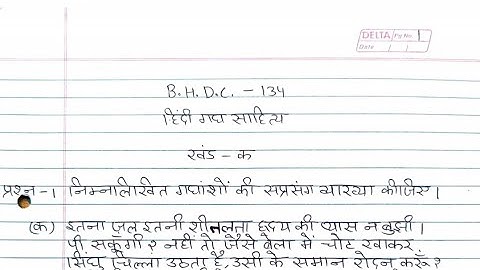 DELTA Pg No. 1
Date / /
B.H.D.C. - 134
हिंदी गद्य साहित्य
खंड - क
प्रश्न-1 निम्नलिखित गद्यांशों की सप्रसंग व्याख्या कीजिए।
(क) इतना जल इतनी शीतलता हृदय की प्यास न बुझी।
पी सकूंगी? नहीं तो जैसे वेला में चोट खाकर
सिंधु चिल्ला उठता है, उसी के समान रोदन करूँ?